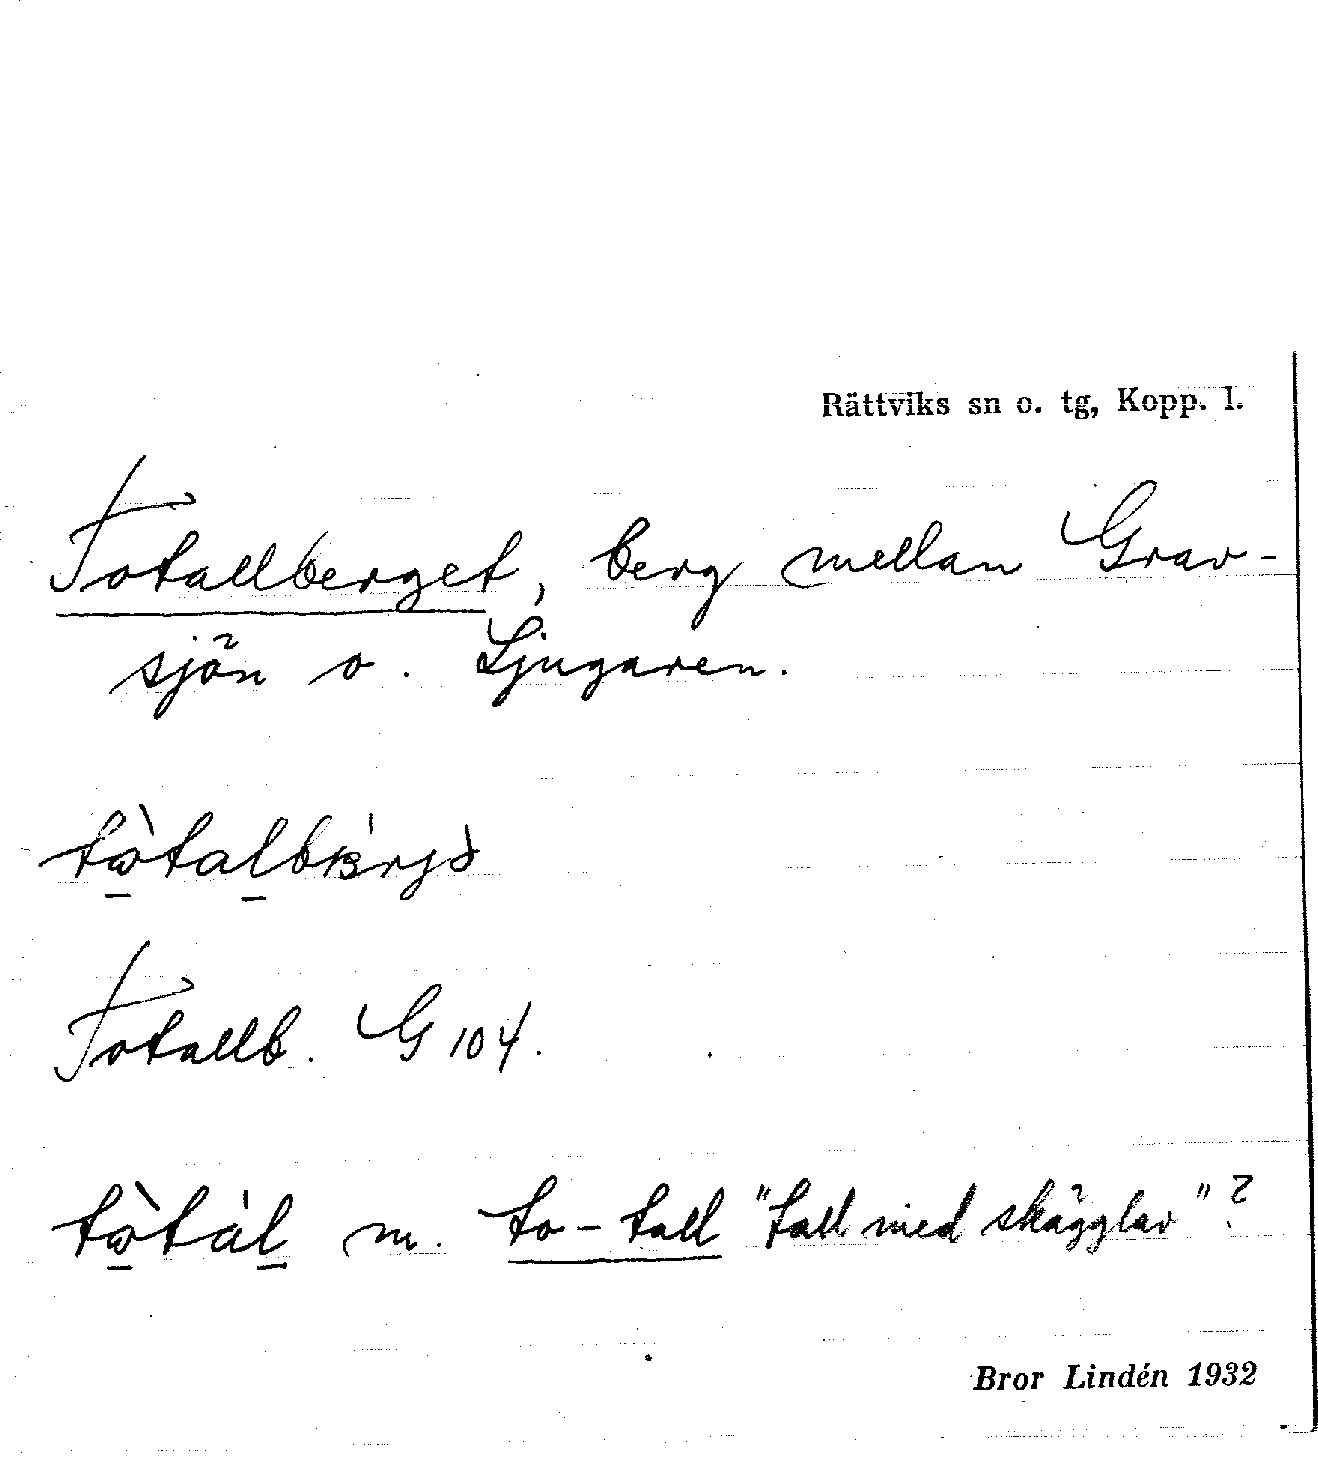 Rättviks sn o. tg, Kopp. l.
Totallberget, berg mellan Grav-
sjön o. Ljugaren.
Totallb. G 104.
m. to-tall "tall med skägglav"?
Bror Lindén 1932